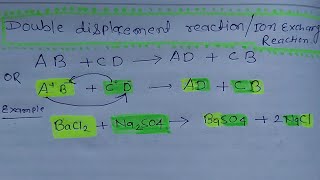 Double displacement reaction/Ion Exchange
Reaction
AB + CD → AD + CB
OR
A⁺B⁻ + C⁺D⁻ → AD + CB
Example
BaCl2 + Na2SO4 → BaSO4 + 2NaCl